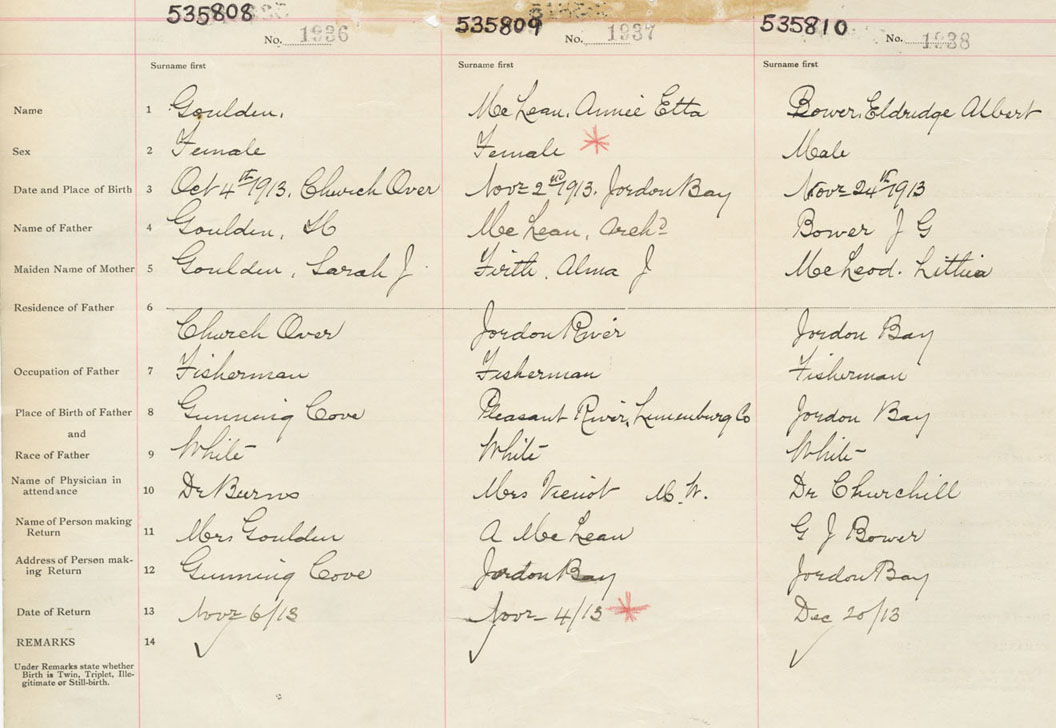 535808 535809 535810
No. 1936 No. 1937 No. 1938
Surname first Surname first Surname first
Name 1 Goulden, McLean, Annie Etta Bower, Eldridge Albert
Sex 2 Female Female Male
Date and Place of Birth 3 Oct 4th 1913, Church Over Novr 2nd 1913. Jordon Bay Novr 24th 1913
Name of Father 4 Goulden, McLean, Archd Bower J G
Maiden Name of Mother 5 Goulden, Sarah J Firth, Alma J McLeod. Lithia
Residence of Father 6
Church Over Jordon River Jordon Bay
Occupation of Father 7 Fisherman Fisherman Fisherman
Place of Birth of Father 8 Gunning Cove Pleasant River, Lunenburg Co Jordon Bay
and
Race of Father 9 White White White
Name of Physician in
attendance 10 Dr Burns Mrs M.W. Dr Churchill
Name of Person making
Return 11 Mrs Goulden A McLean G J Bower
Address of Person mak-
ing Return 12 Gunning Cove Jordon Bay Jordon Bay
Date of Return 13 Novr 6/13 Novr 4/13 Dec 20/13
REMARKS 14
Under Remarks state whether
Birth is Twin, Triplet, Ille-
gitimate or Still-birth.